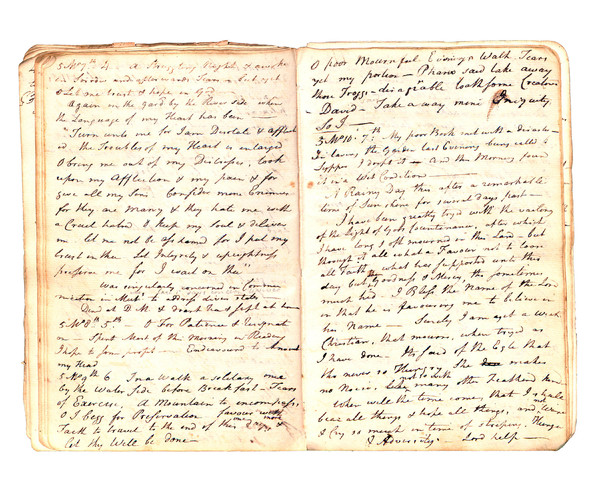 5 Mo 7th 4 - A Struggling Night, & awoke
in and afterwards Tears
& Let me trust & hope in God
Again in the yard by the River side when
the Language of my Heart has been
"Turn unto me for I am Desolate & afflict
ed. the Troubles of my Heart is enlarged
O bring me out of my Distresses, look
upon my Affliction & my pain & for
give all my Sins. Consider mine Enemies
for they are Many & they hate me with
a Cruel hatred. O keep my Soul & deliver
me. let me not be ashamed for I put my
trust in thee. Let Integrity & uprightness
preserve me for I wait on thee"
Was singularly concerned in Commu
nication in Meetg to address divers states
Dined at D.M. & drank tea & slept at home
5 Mo 8th 5th - O For Patience & Resignati
on - Spent Most of the Morning in Reading
I hope to some profit - Endeavoured to
my Head
5 Mo 9th 6 In a Walk a solitary one
by the Water Side before Breakfast - Tears
of Exercise. A Mountain to encompass,
O I begg for Preservation favour with
Faith to travel to the end of this
Let thy Will be done -
O poor Mournful Evenings Walk Tears
yet my portion - Pharo said take away
those Froggs - disagreable loathsome Creatures
- David - Take away mine Iniquity
So I -
5 Mo 10: 7th: My poor Book met with a disaster
In leaving the Garden last Evening being called to
Supper I dropt it - And this Morning found
it in a Wet Condition -
A Rainy Day this after a remarkable
term of Sunshine for several days past -
I have been greatly tryed with the waiting
of the Light of Gods Countenance, after which
I have long & oft mourned in this Land - but
through it all what a Favour not to loose
all Faith what has supported unto this
day but Goodness & Mercy tho sometimes
much hid. I Bless the Name of the Lord
in that he is favouring me to believe in
his Name - Surely I am yet a weak
Christian, that mourns, when tryed as
I have done. Its said of the Eagle that
tho never so Hungry The makes
no Noise, like many other Feathered
When will the time come that I shall
bear all things & hope all things, and not
I Cry so much in time of
& Adversity. - Lord help -